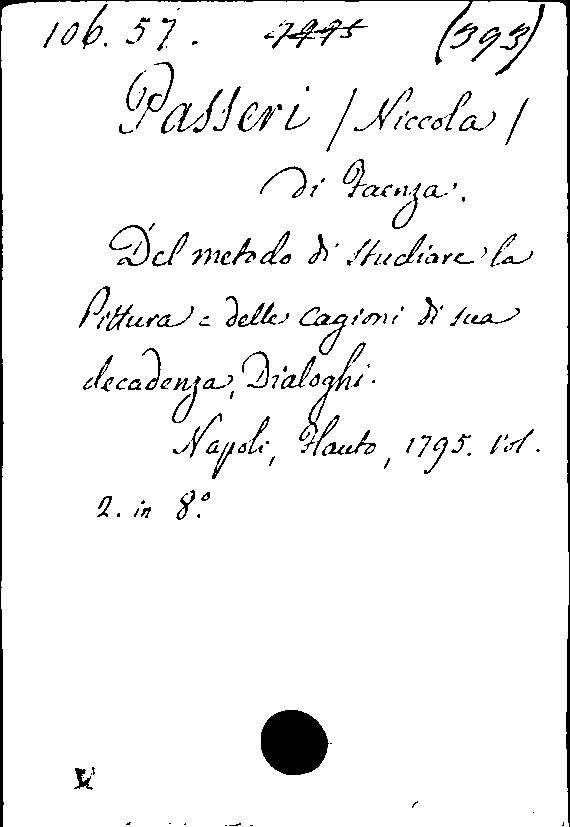 106. 57. 7495 (393)
Passeri / Niccola /
di Faenza.
Del metodo di studiare la
Pittura e delle cagioni di sua
decadenza, Dialoghi.
Napoli, Flauto, 1795. Vol.
2. in 8.º